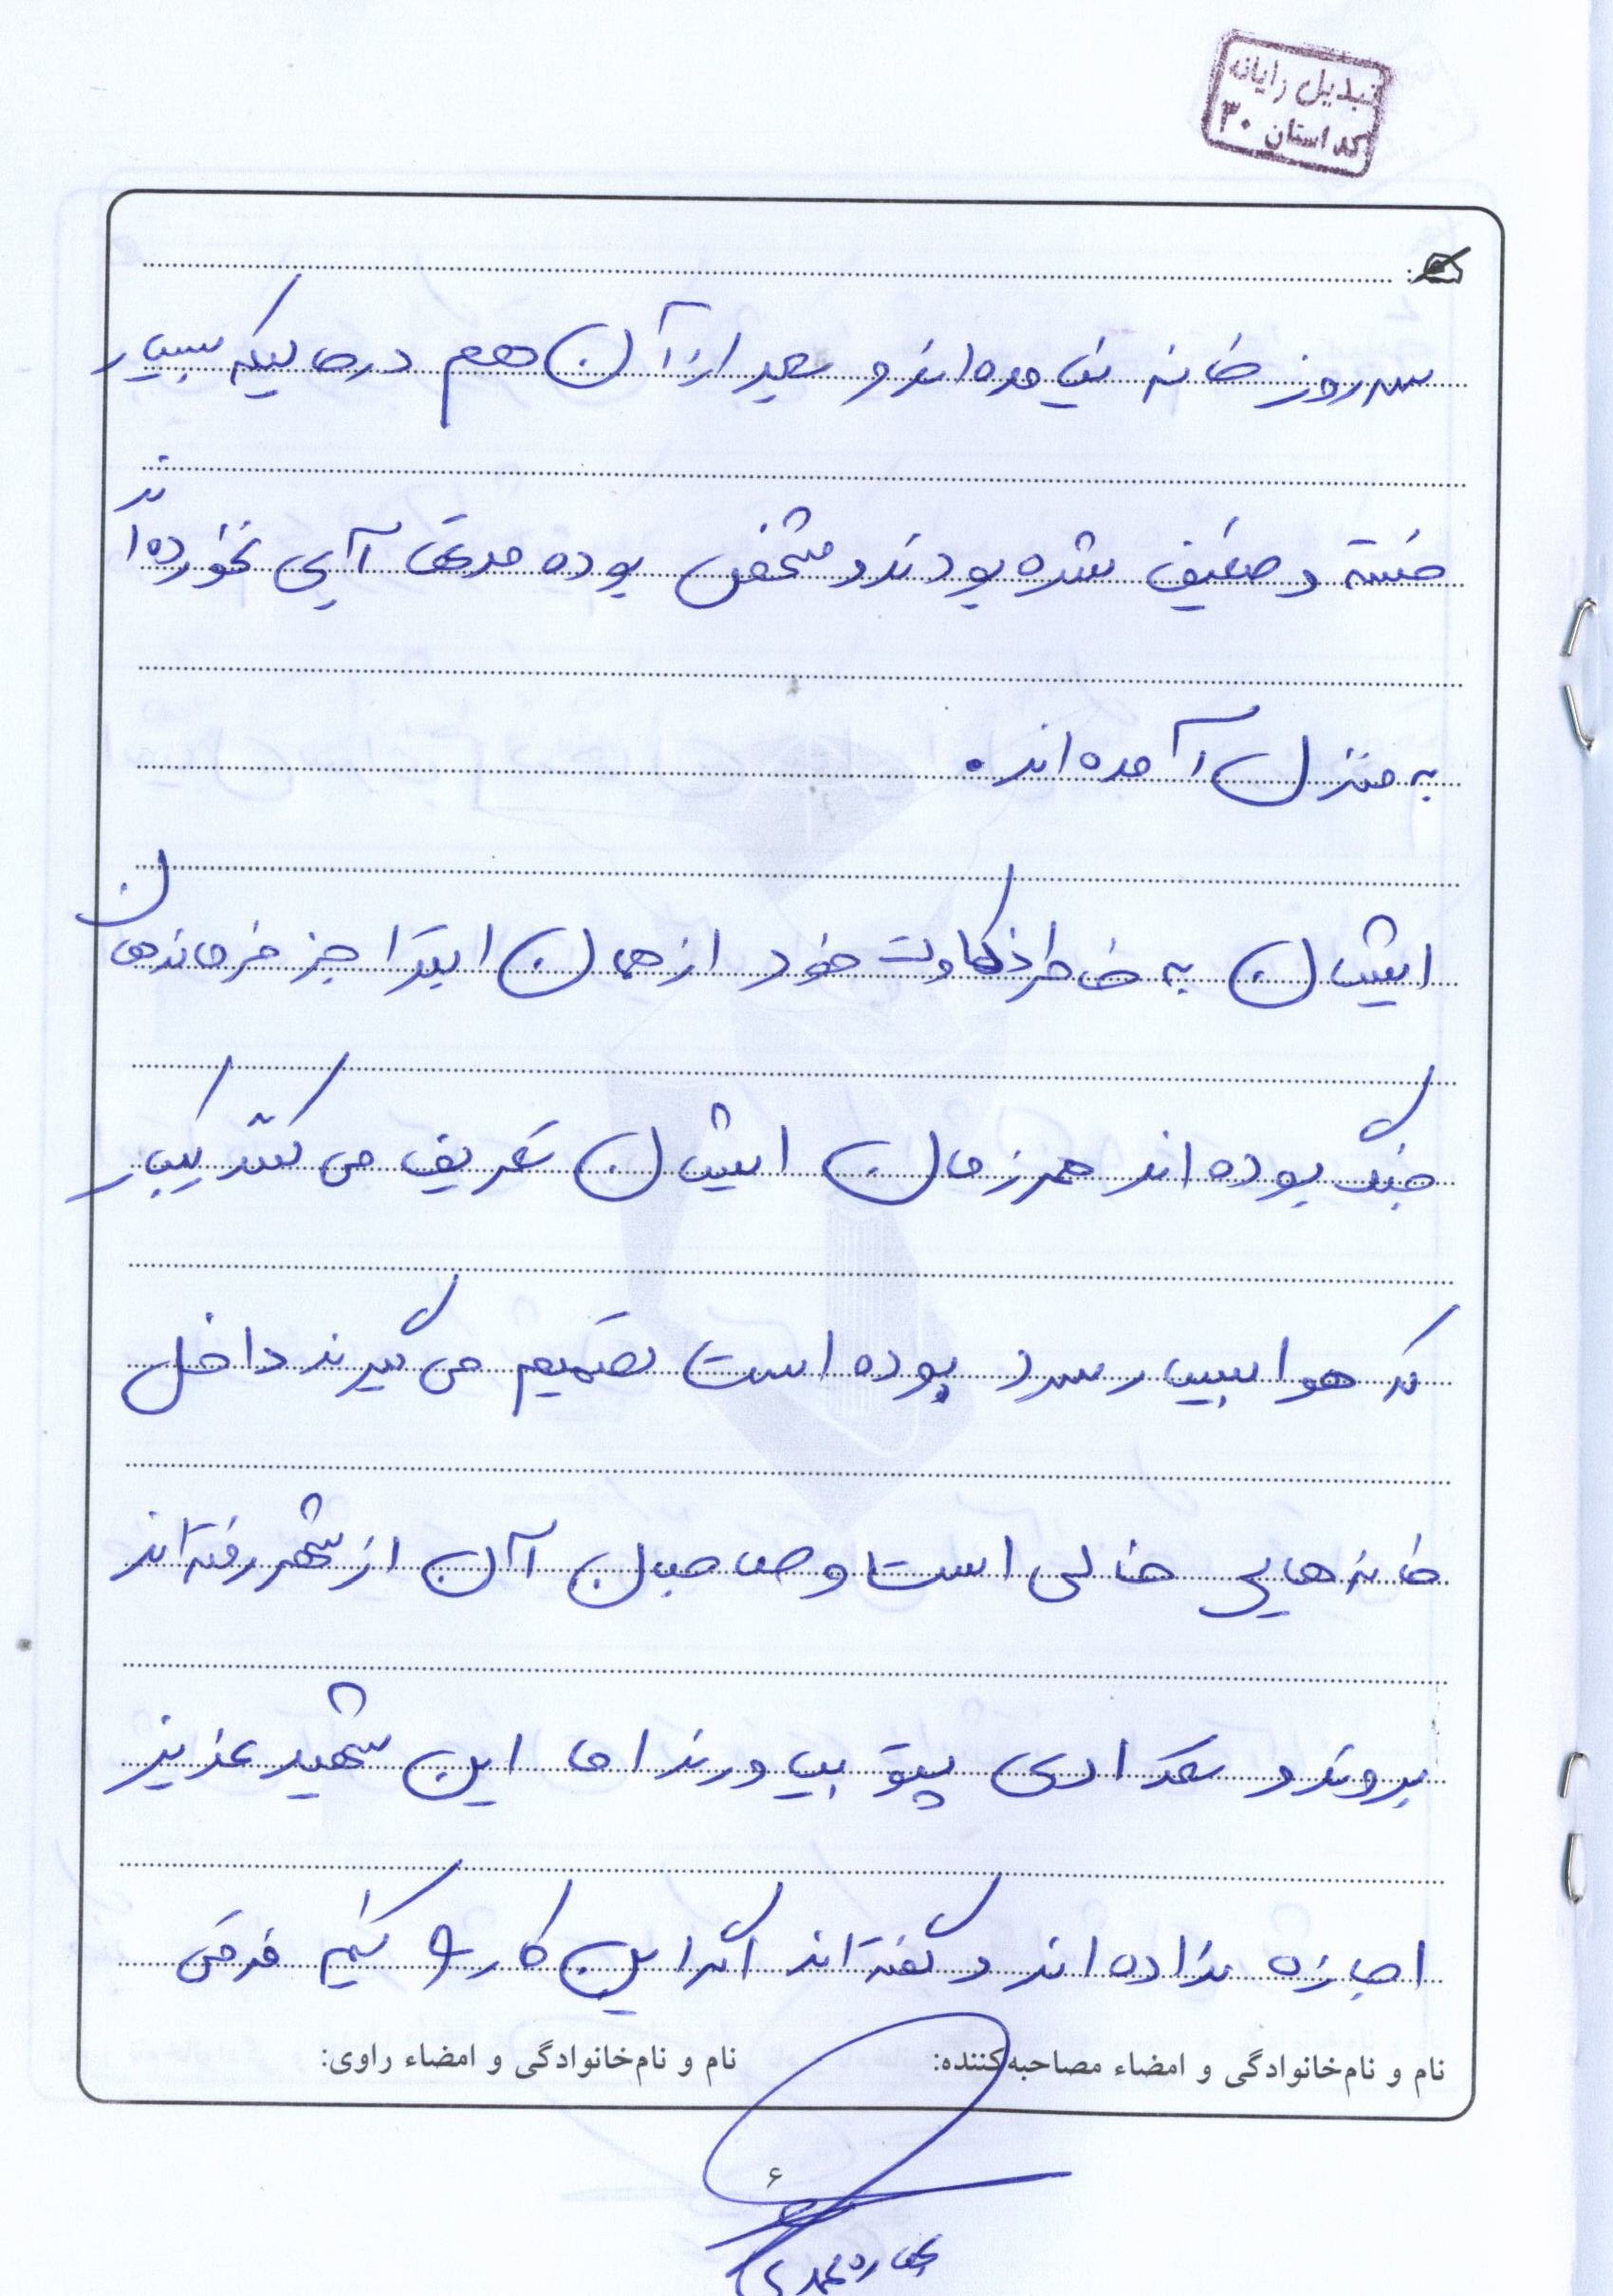 تبدیل رایانه
کد استان ۳۰
سه روز خانه نیامده‌اند و بعد از آن هم درحالیکه بسیار
خسته و ضعیف شده بودند و مشخص بوده مدتی آبی نخورده‌اند
به منزل آمده‌اند.
ایشان به خاطر ذکاوت خود از همان ابتدا جز فرماندهان
جنگ بوده‌اند همرزمان ایشان تعریف می کنند یکبار
که هوا بسیار سرد بوده است تصمیم می گیرند داخل
خانه‌هایی خالی است و صاحبان آن از شهر رفته‌اند
بروند و تعدادی پتو بیاورند اما این شهید عزیز
اجازه نداده‌اند و گفته‌اند اگر این کار را کنیم فرقی
نام و نام‌خانوادگی و امضاء مصاحبه‌کننده: نام و نام‌خانوادگی و امضاء راوی:
۶